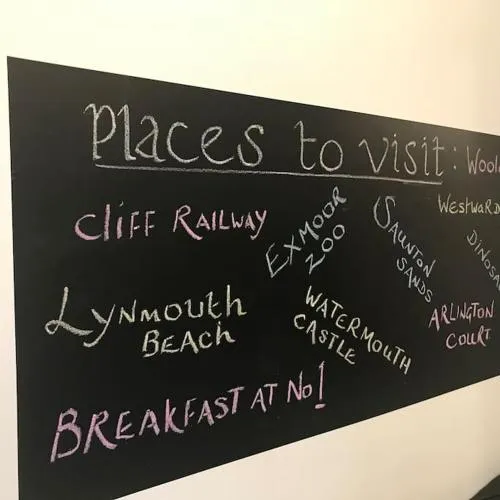 Places to visit:
Cliff Railway
Exmoor
Zoo
Saunton
Sands
Lynmouth
Beach
Watermouth
Castle
Arlington
Court
Breakfast at No1